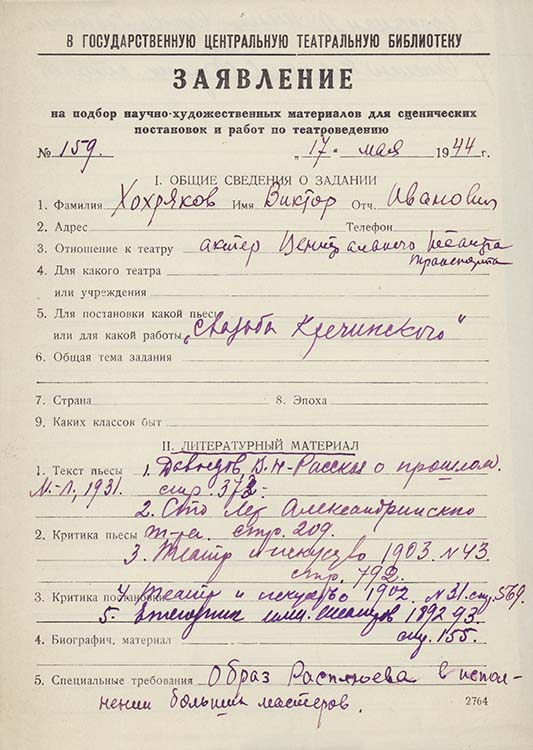 В ГОСУДАРСТВЕННУЮ ЦЕНТРАЛЬНУЮ ТЕАТРАЛЬНУЮ БИБЛИОТЕКУ
ЗАЯВЛЕНИЕ
на подбор научно-художественных материалов для сценических
постановок и работ по театроведению
№ 159. „17" мая 1944 г.
I. ОБЩИЕ СВЕДЕНИЯ О ЗАДАНИИ
1. Фамилия Хохряков Имя Виктор Отч. Иванович
2. Адрес Телефон
3. Отношение к театру актер Центрального театра
транспорта
4. Для какого театра
или учреждения
5. Для постановки какой пьесы
или для какой работы „Свадьба Кречинского"
6. Общая тема задания
7. Страна 8. Эпоха
9. Каких классов быт
II. ЛИТЕРАТУРНЫЙ МАТЕРИАЛ
1. Текст пьесы 1. Давыдов В.Н. Рассказ о прошлом.
М.-Л., 1931. стр. 372.
2. Сто лет Александринского
2. Критика пьесы т-ра. стр. 209.
3. Театр и искусство 1903. N 43.
стр. 792.
3. Критика постановки 4. Театр и искусство 1902. N 31. стр. 569.
5. Ежегодник имп. театров 1892-93.
4. Биографич. материал стр. 155.
5. Специальные требования Образ Расплюева в испол-
нении больших мастеров.
2764